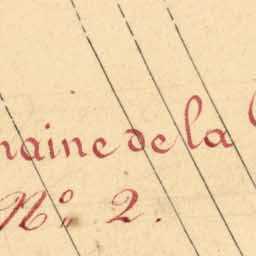 maine de la
No. 2.